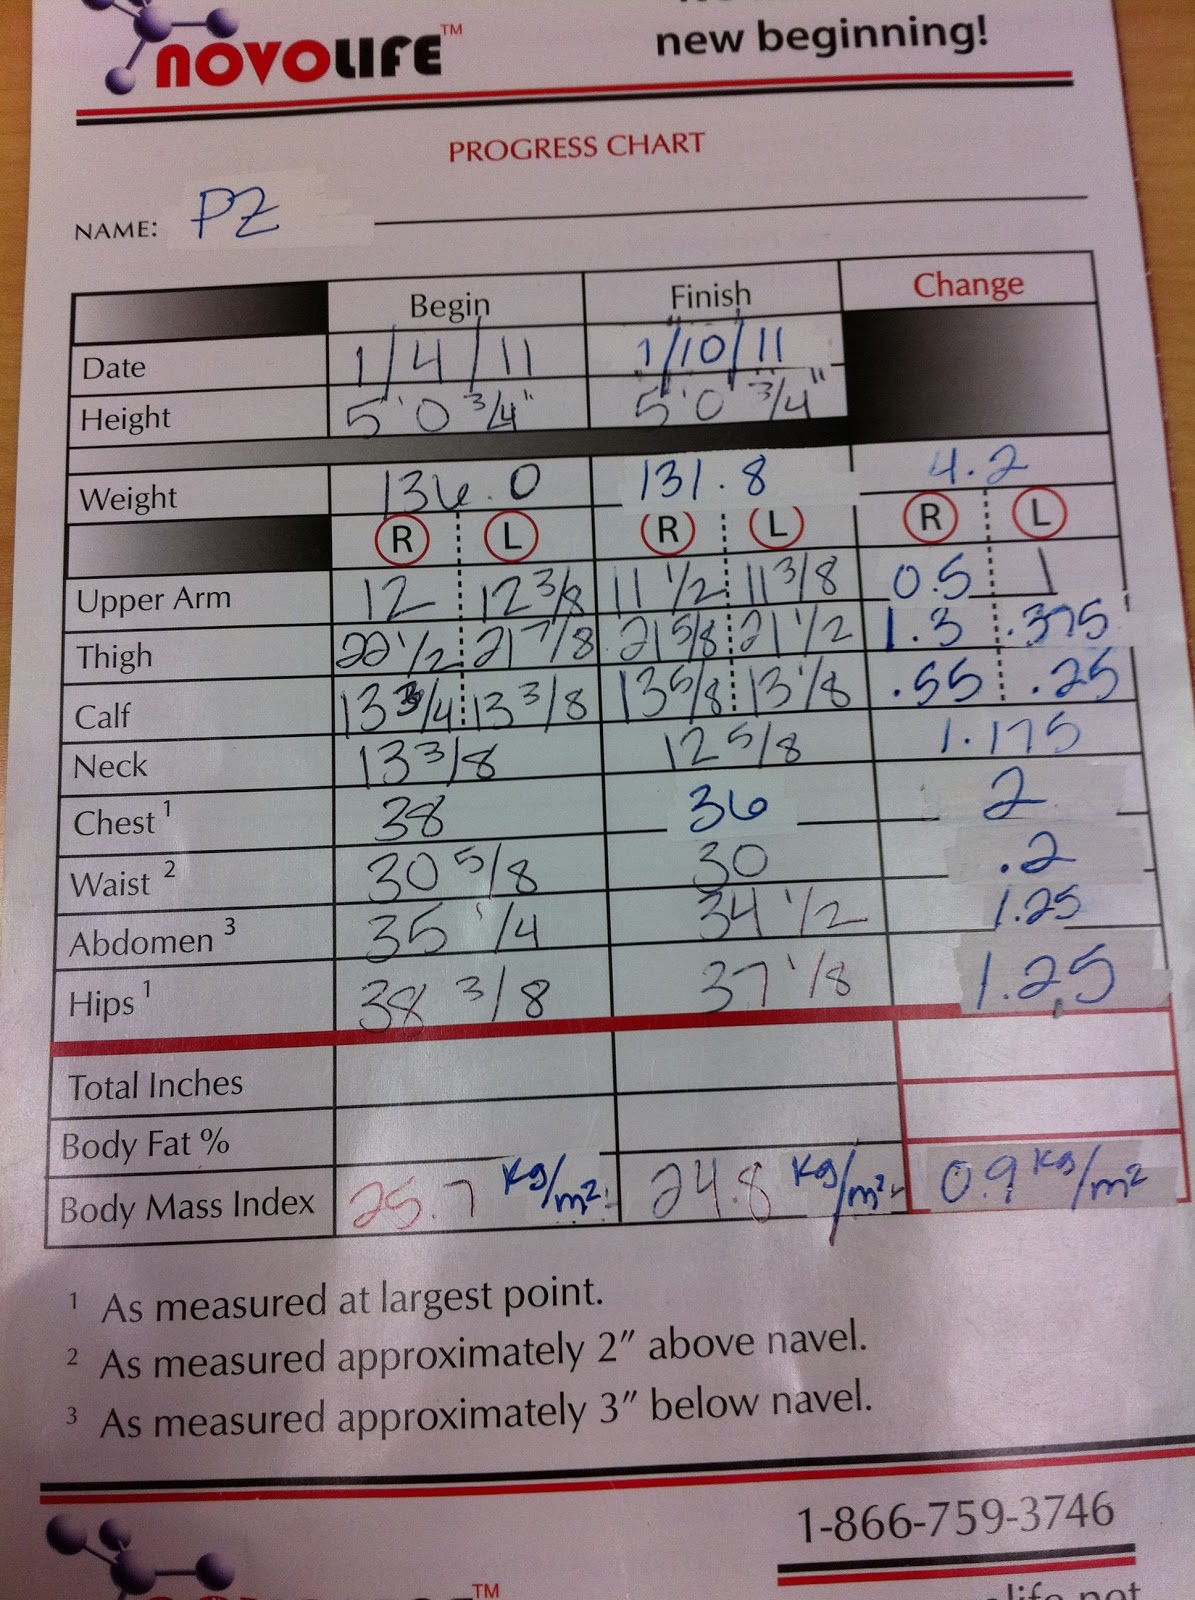 NOVOLIFE™
new beginning!
PROGRESS CHART
NAME: PZ
Begin Finish Change
Date 1/4/11 1/10/11
Height 5'0 3/4" 5'0 3/4"
Weight 136.0 131.8 4.2
R L R L R L
Upper Arm 12 12 3/8 11 1/2 11 3/8 0.5 1
Thigh 22 1/2 21 7/8 21 5/8 21 1/2 1.3 .375
Calf 13 3/4 13 3/8 13 5/8 13 1/8 .55 .25
Neck 13 3/8 12 5/8 1.175
Chest 1 38 36 2
Waist 2 30 5/8 30 .2
Abdomen 3 35 1/4 34 1/2 1.25
Hips 1 38 3/8 37 1/8 1.25
Total Inches
Body Fat %
Body Mass Index 25.7 kg/m2 24.8 kg/m2 0.9 kg/m2
1 As measured at largest point.
2 As measured approximately 2" above navel.
3 As measured approximately 3" below navel.
1-866-759-3746
™